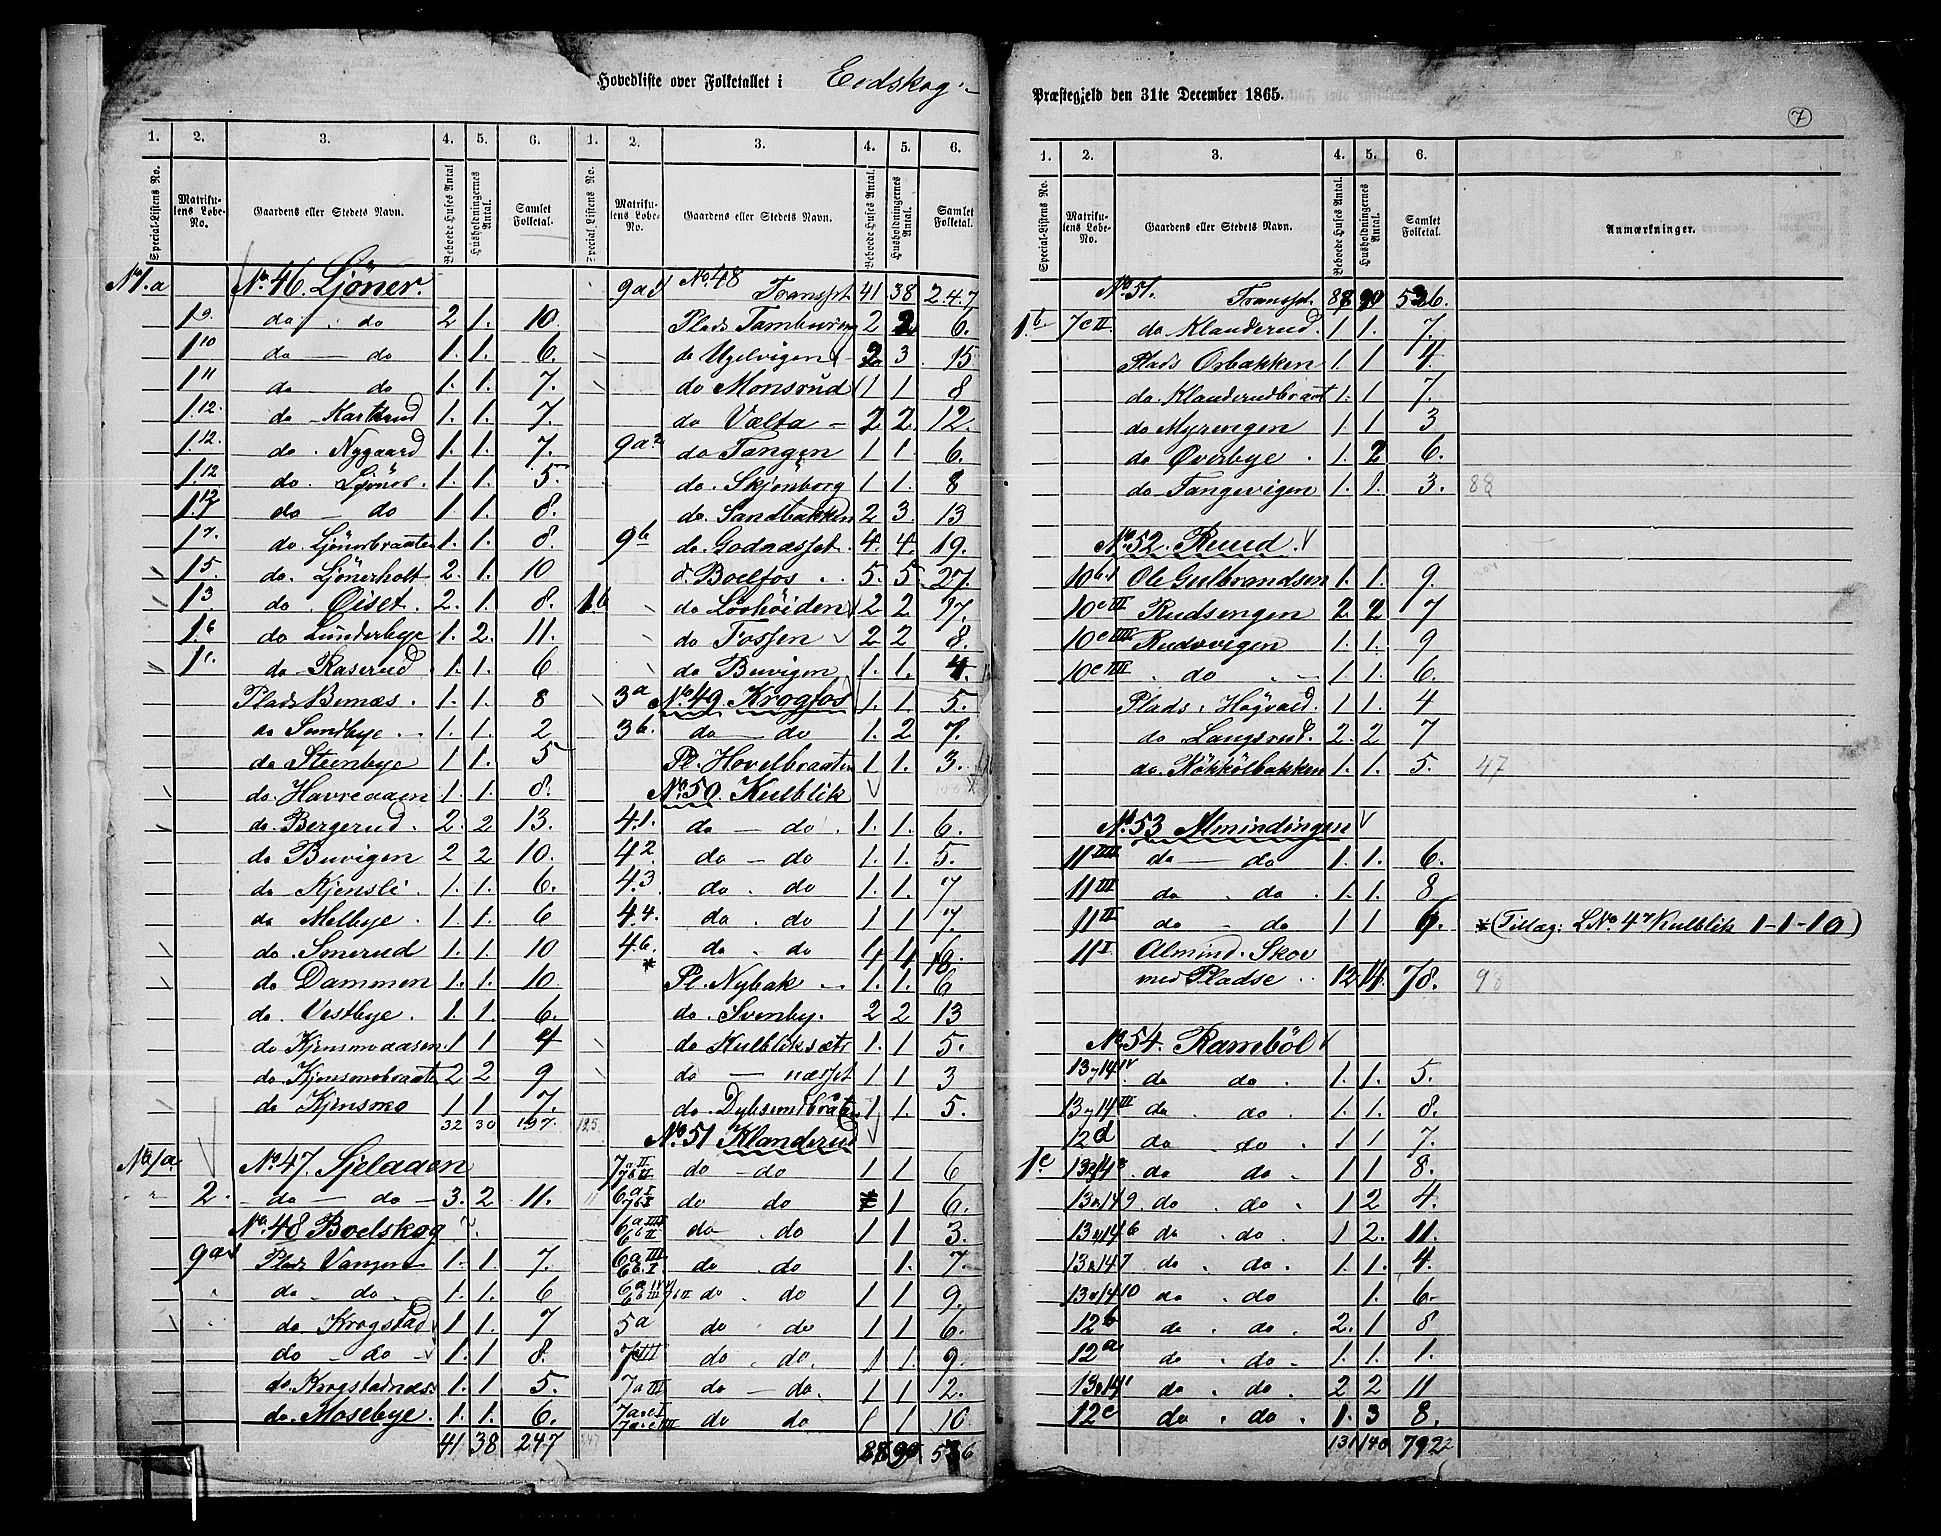 Hovedliste over Folketallet i Eidskog
1. 2. 3. 4. 5. 6. 1. 2. 3. 4. 5. 6.
Special-Listens No. Matrikulens Løbe-No. Gaardens eller Stedets Navn. Beboede Huses Antal. Husholdningernes Antal. Samlet Folketal. Special-Listens No. Matrikulens Løbe-No. Gaardens eller Stedets Navn. Beboede Huses Antal. Husholdningernes Antal. Samlet Folketal.
No 1.a No. 46. Ljöner.
1 9. do do 2 1. 10.
1 10 do — do 1. 1. 6.
1 11 do do 1. 1. 7.
1. 12. do 1. 1. 7.
1. 12. do. Nygaard 1. 1. 7.
1. 12 do. Ljöner. 1. 1. 5.
1. 12 do — do 1. 1. 8.
1 7. do. Ljönerbraaten 1. 1. 8.
1 5. do. Ljönerholt 2. 1. 10
1 3 do. Oiset. 2. 1. 8.
1. 6 do Lunderbye 1. 2. 11.
1 1. do Raserud. 1. 1. 6
Plads Bernæs. 1. 1 8
do Sundbye. 1. 1. 2
do Steenbye 1 1. 5
do. Havreaaen 1. 1 8.
do. Bergerud. 2. 2 13.
do Buvigen 2 2 10.
do Kjensli. 1. 1. 6.
do Melbye. 1. 1. 6
do. Smerud 1. 1 10
do Dammen 1. 1. 10
do. Vestbye. 1. 1. 6.
do Kjensmoaasen 1 1 4
do. Kjensmobraaten 2 2 9
do Kjensmo 1 1 7.
32 30 197.
No 1a No. 47. Sjelaaen
2. do — do 3. 2 11.
No. 48 Boelskog
9a1 Plads Vangen 1. 1 7.
do. do. 1. 1. 6
do. Krogstad 1 1. 7
do — do 1. 1 8.
do. Krogstadnæs 1. 1 5.
do. Mosebye. 1. 1. 6.
41 38 247
9a1 No. 48 Transpt 41 38 247
Plads Tambureng 2 2 6.
do Ugelvigen 2 3. 15
do Monsrud 1 1 8
do Valta 2 2. 12.
9a2 do Tangen 1 1. 6.
do. Skjenborg 1 1. 8
do. Sandbakken 2 3. 13
9b do. Godnæsset 4. 4. 19.
Boelfos 5. 5. 27.
1b do Lövhöiden 2 2 17.
do Fossen 2 2 8.
do Buvigen 1. 1. 4.
3a No. 49. Krogfos 1. 1 5.
3b. do — do 1. 2 7.
Pl. Hovelbraaten 1 1. 3.
No. 50. Kulblik
4.1. do — do. 1. 1. 6.
4.2 do — do 1. 1. 5.
4.3 do. do 1. 1. 7
4.4. do. do 1 1 7.
4 6. do. do
*
Pl. Nybak 1. 1. 6
do. Svenby. 2 2 13
do Kulbliksætr 1. 1 5.
do — næsset 1 1 3
do. 1 1. 5.
No. 51 Klanderud
7a II do — do 1 1 6
do do 1 6.
do. do 1 1 3.
do do 1. 7.
do. do 1 1 9.
5a do do 1 1 6.
do. do. 1 1. 9.
7a III do — do. 1 1 2.
do do 1 1 10
Præstegjeld den 31te December 1865.
7
1. 2. 3. 4. 5. 6.
Special-Listens No. Matrikulens Løbe-No. Gaardens eller Stedets Navn. Beboede Huses Antal. Husholdningernes Antal. Samlet Folketal. Anmærkninger.
No. 51. Transpt.
1.b 7c II. do Klanderud. 1. 1. 7.
Plads Orbakken 1. 1 4.
do. Klanderudbraat 1. 1 7.
do Myrengen 1. 1 3
do Overbye. 1. 2 6.
do Tangevigen 1. 1. 3. 88
No. 52. Ruud.
10b.1 Ole Gulbrandsen 1. 1. 9.
10c II Rudsengen 2 2 7
10c III Rudsvigen 1. 1. 9
10c IIII do 1. 1 6.
Plads Högvald 1. 1 4
do Langsrud. 2. 2 7
do. Kökkölbakken 1. 1. 5. 47
No. 53 Almindingen
11 IIII do — do 1. 1. 6.
11 III do. do. 1. 1. 8
11 II do — do 1 1 6. * (Tillæg: LNo. 4 7 Kulblik 1-1-10)
11 I Almind. Skov
med Pladse 12 14. 78.
No. 54. Ramböl
13 y 14 IV. do do. 1. 1. 5.
13 y 14 III do. do. 1. 1. 8.
12d do do. 1 1 7.
1.c 13 y 14 3 do do. 1 1 8.
13 y 14 9. do. do. 1 2 4.
13 y 14 6 do. do. 1 2. 11.
13 y 14 7 do. do. 1. 1. 4.
13 y 14 10 do. do 1. 6.
12b do. do. 2. 1 8
12a do. do. 1. 1. 1.
13 y 14 1 do. do. 2 2 11
12c do. do. 1. 3 8.
131 140 792